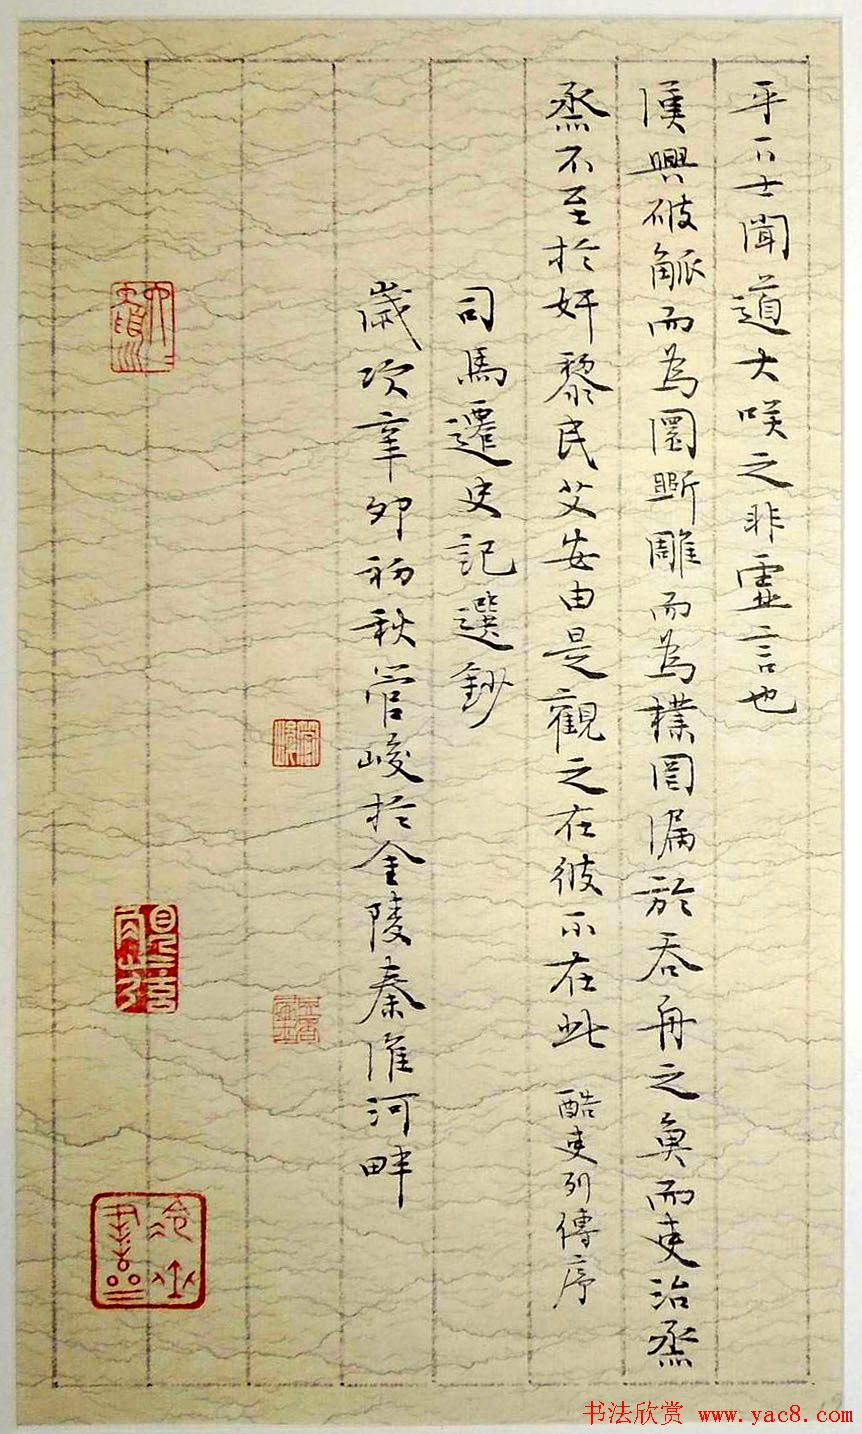 乎下士聞道大咲之非虛言也
漢興破觚而為圜斲雕而為樸罔漏於吞舟之魚而吏治烝
烝不至於奸黎民艾安由是觀之在彼不在此 酷吏列傳序
司馬遷史記選鈔
歲次辛卯初秋管峻於金陵秦淮河畔
书法欣赏 www.yac8.com